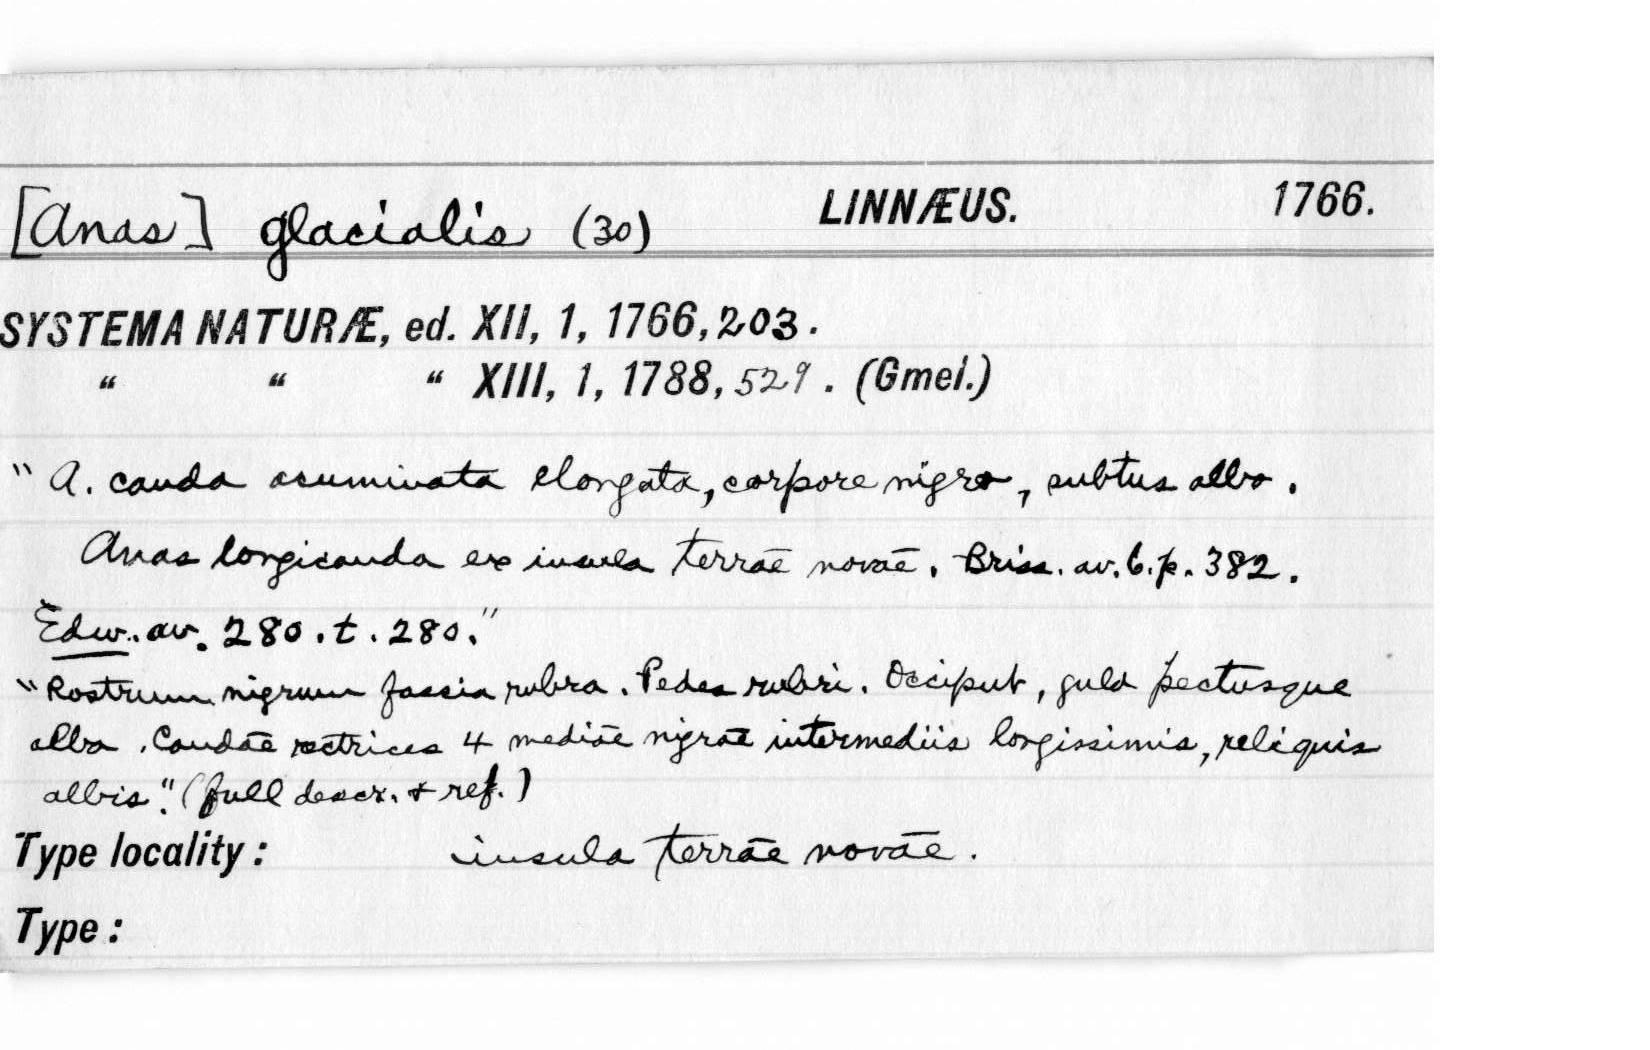 [Anas] glacialis (30) LINNÆUS. 1766.
SYSTEMA NATURÆ, ed. XII, 1, 1766, 203.
“ “ “ XIII, 1, 1788, 529. (Gmel.)
"A. cauda acuminata elongata, corpore nigro, subtus albo.
Anas longicauda ex insula terrāe novāe. Briss. av. 6. p. 382.
Edw. av. 280. t. 280."
"Rostrum nigrum fascia rubra. Pedes rubri. Occiput, gula pectusque
alba. Caudāe rectrices 4 mediāe nigrāe intermediis longissimis, reliquis
albis." (full descr. & ref.)
Type locality: insula terrāe novāe.
Type: